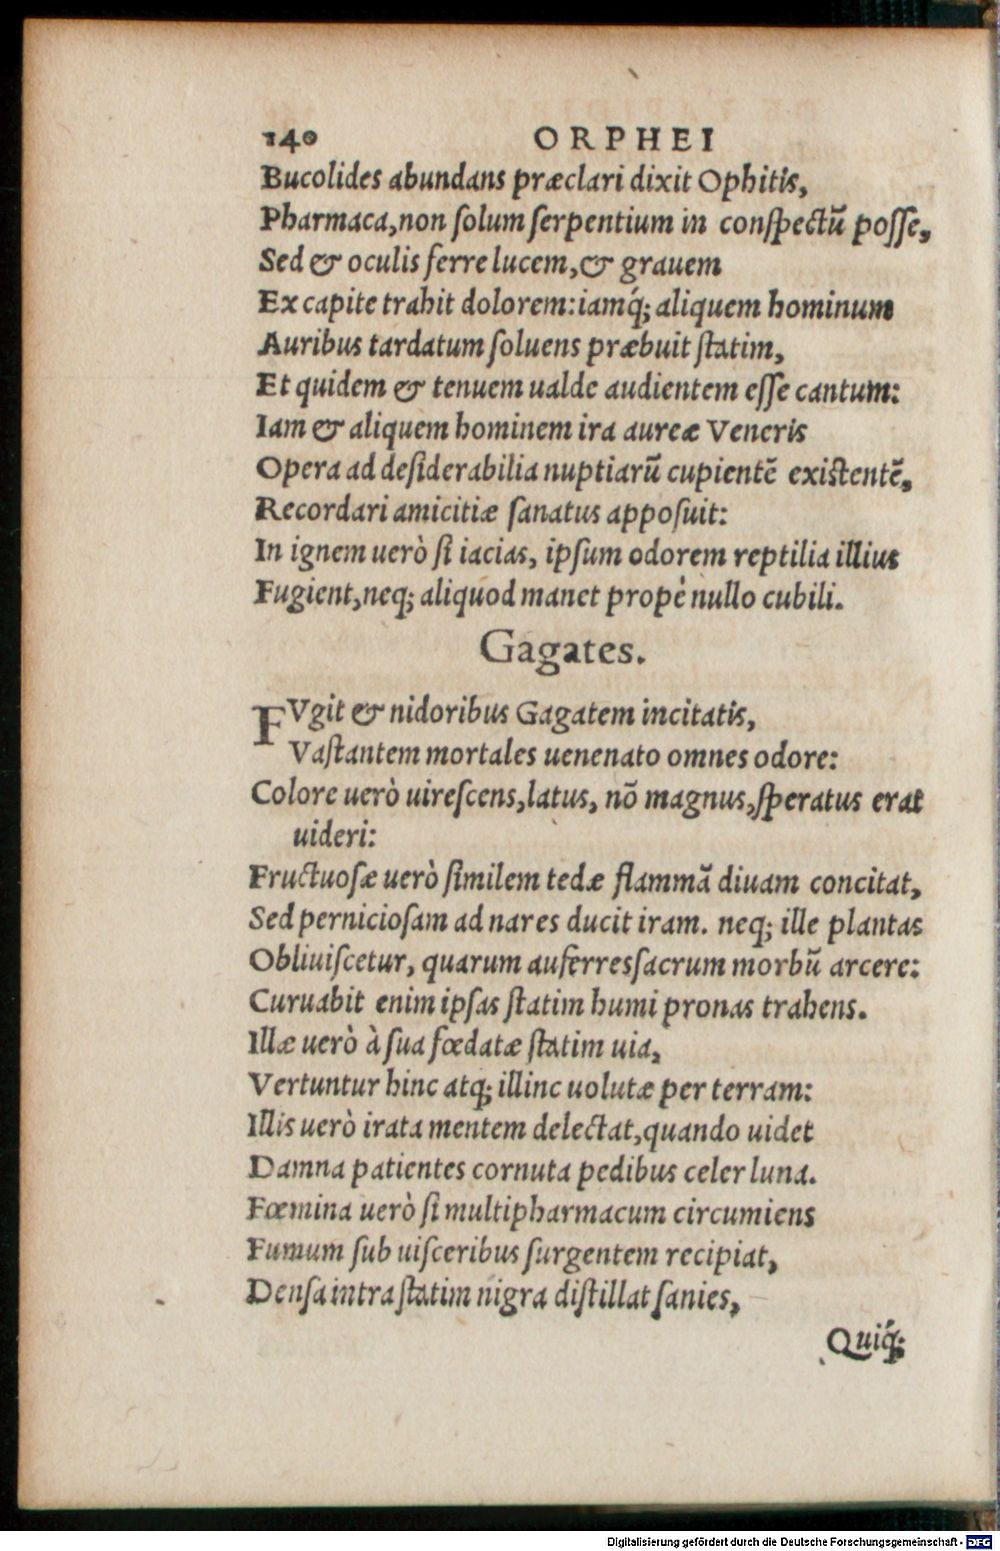 140 ORPHEI
Bucolides abundans præclari dixit Ophitis,
Pharmaca,non ſolum ſerpentium in conſpectũ poſſe,
Sed & oculis ferre lucem,& grauem
Ex capite trahit dolorem:iamq́; aliquem hominum
Auribus tardatum ſoluens præbuit ſtatim,
Et quidem & tenuem ualde audientem eſſe cantum:
Iam & aliquem hominem ira aureæ Veneris
Opera ad deſiderabilia nuptiarũ cupientẽ existentẽ,
Recordari amicitiæ ſanatus appoſuit:
In ignem uerò ſi iacias, ipſum odorem reptilia illius
Fugient,neq; aliquod manet propè nullo cubili.
Gagates.
FVgit & nidoribus Gagatem incitatis,
Vaſtantem mortales uenenato omnes odore:
Colore uerò uireſcens,latus, nõ magnus,ſperatus erat
uideri:
Fructuoſæ uerò ſimilem tedæ flammã diuam concitat,
Sed pernicioſam ad nares ducit iram. neq; ille plantas
Obliuiſcetur, quarum auferres ſacrum morbũ arcere:
Curuabit enim ipſas ſtatim humi pronas trahens.
Illæ uerò à ſua fœdatæ ſtatim uia,
Vertuntur hinc atq; illinc uolutæ per terram:
Illis uerò irata mentem delectat,quando uidet
Damna patientes cornuta pedibus celer luna.
Fœmina uerò ſi multipharmacum circumiens
Fumum ſub uiſceribus ſurgentem recipiat,
Denſa intra ſtatim nigra diſtillat ſanies,
Quiq́;
Digitalisierung gefördert durch die Deutsche Forschungsgemeinschaft - DFG